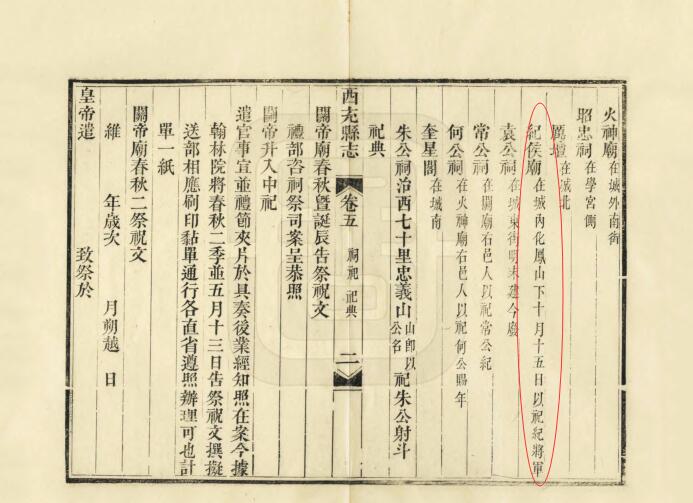 火神廟在城外南街
昭忠祠在學宮側
厲壇在城北
紀侯廟在城內化鳳山下十月十五日以祀紀將軍
袁公祠在城東街明末建今廢
常公祠在關廟右邑人以祀常公紀
何公祠在火神廟右邑人以祀何公賜年
奎星閣在城南
朱公祠治西七十里忠義山山卽以公名祀朱公射斗
祀典
西充縣志 卷五 祠祀 祀典 二
關帝廟春秋暨誕辰告祭祝文
禮部咨祠祭司案呈恭照
關帝升入中祀
遣官事宜並禮節夾片於具奏後業經知照在案今據
翰林院將春秋二季並五月十三日告祭祝文撰擬
送部相應刷印黏單通行各直省遵照辦理可也計
單一紙
關帝廟春秋二祭祝文
維 年歲次 月朔越 日
皇帝遣 致祭於